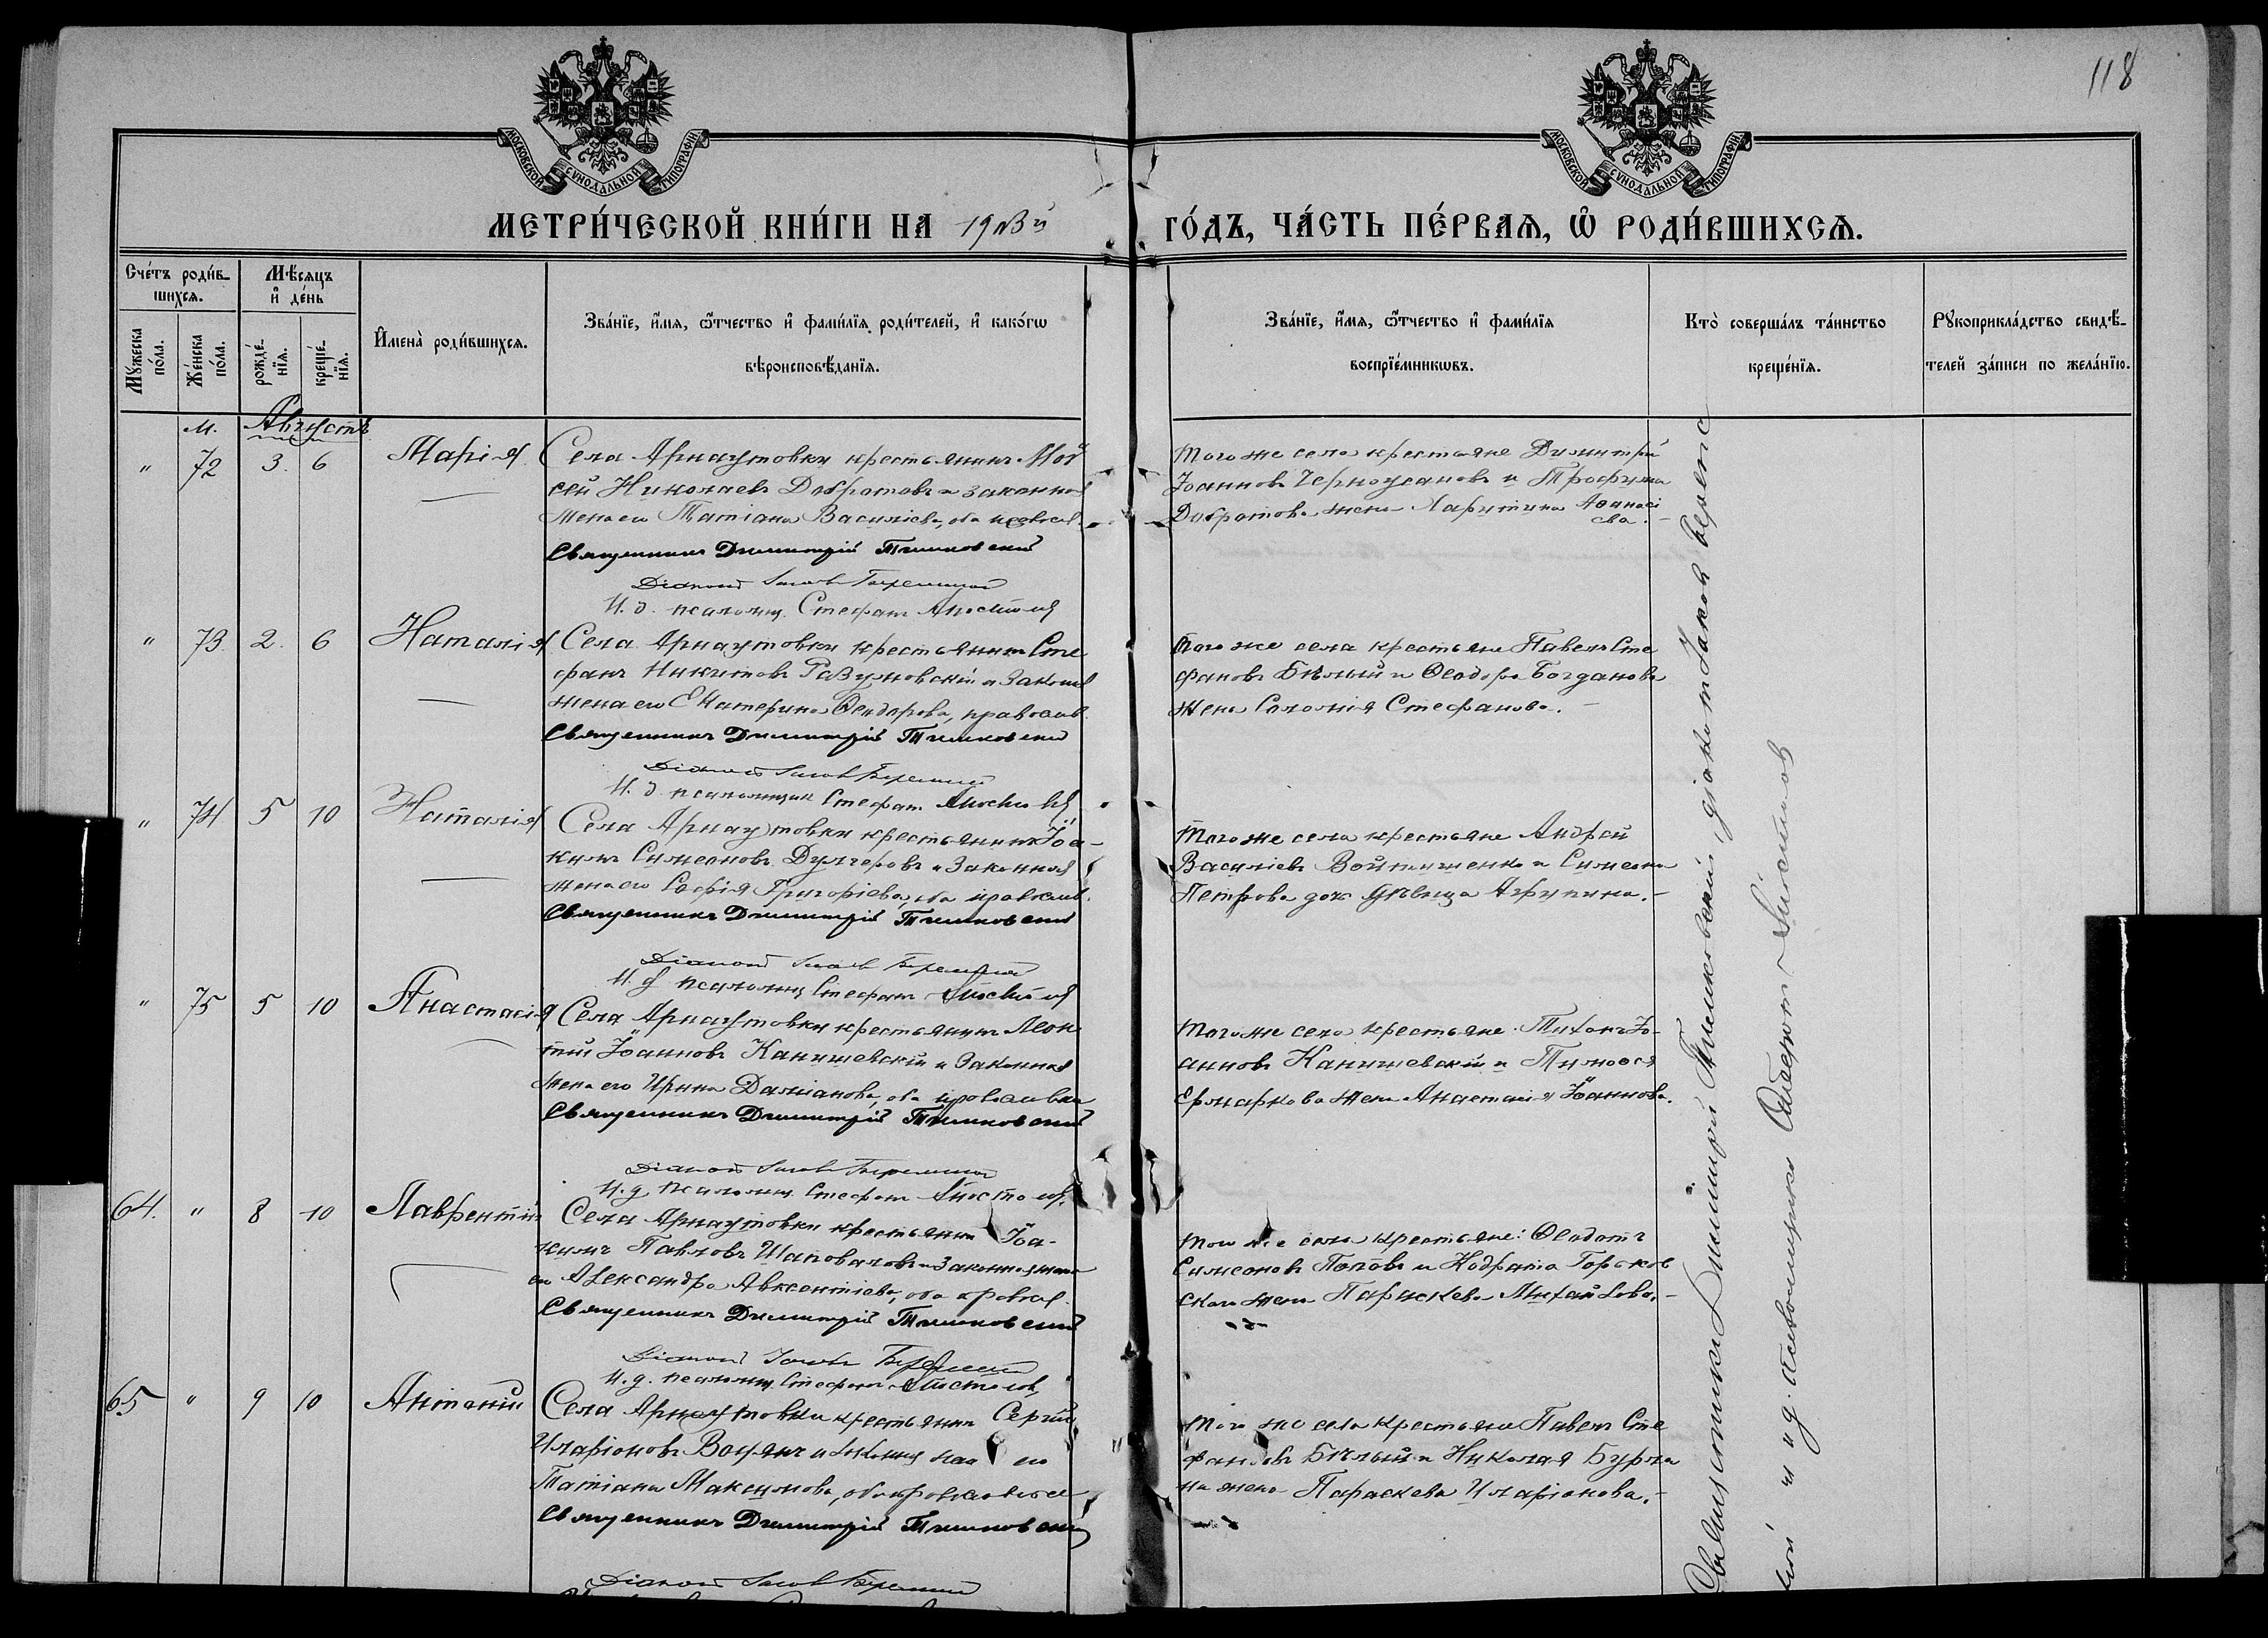 118
МОСКОВСКОЙ СѴНОДАЛЬНОЙ ТИПОГРАФІИ
МОСКОВСКОЙ СѴНОДАЛЬНОЙ ТИПОГРАФІИ
МЕТРИ́ЧЕСКОЙ КНИ́ГИ НА ГО́ДЪ, ЧА́СТЬ ПЕ́РВАѦ, Ѡ РОДИ́ВШИХСѦ.
Сче́тъ роди́в-
шихсѧ.
Мꙋ́жеска по́ла.
Же́нска по́ла.
Мѣ́сѧцъ
и де́нь
рожде́-нїѧ.
креще́-нїѧ.
Имена̀ роди́вшихсѧ.
Зва́нїе, и́мѧ, ѻ́тчество и фами́лїѧ роди́телей, и како́гѡ
вѣроисповѣ́данїѧ.
Зва́нїе, и́мѧ, ѻ́тчество и фами́лїѧ
воспрїе́мникѡвъ.
Кто̀ соверша́лъ та́инство
креще́нїѧ.
Рꙋкоприкла́дство свидѣ́-
телей за́писи по жела́нїю.
м. Августъ
" 72 3. 6 Марія
Села Арнаутовки крестьянинъ Мои
сей Николаевъ Добротовъ и законная
жена его Татіана Василіева, оба правосл.
Священникъ Димитрій Тимковскій
Діаконъ Іаковъ
И. д. псаломщ. Стефанъ Апостоловъ
Того же села крестьяне Димитрій
Іоанновъ Черноусановъ и Трофима
Добротова жена Харитина Аѳанасі
ева.
" 73 2. 6 Наталія
Села Арнаутовки крестьянинъ Сте
фанъ Никитовъ Разумовскій и законная
жена его Екатерина Ѳеодорова, православ.
Священникъ Димитрій Тимковскій
Діаконъ Іаковъ
И. д. псаломщик Стефанъ Апостоловъ
Того же села крестьяне Павелъ Сте
фановъ Бѣлый и Ѳеодора Богданова
жена Саломія Стефанова.
" 74 5 10 Наталія
Села Арнаутовки крестьянинъ Іоа-
кимъ Симеоновъ Дулгеровъ и законная
жена его Софія Григоріева, оба православ.
Священникъ Димитрій Тимковскій
Діаконъ Іаковъ
И. д. псаломщ. Стефанъ Апостоловъ
Того же села крестьяне Андрей
Василіевъ Войтушенко и Симеона
Петрова дочь дѣвица Агрипина.
" 75 5 10 Анастасія
Села Арнаутовки крестьянинъ Леон
тій Іоанновъ Канишевскій и законная
жена его Ирина Даміанова, оба православн
Священникъ Димитрій Тимковскій
Діаконъ Іаковъ
И. д. псаломщ. Стефанъ Апостоловъ
Того же села крестьяне: Тихонъ Іо-
анновъ Канишевскій и Тимоѳея
Ермаркова жена Анастасія Іоаннова.
64. " 8 10 Лаврентій
Села Арнаутовки крестьянин Іоа-
кимъ Павловъ Шаповаловъ и законная жена
его Александра Авксентіева, оба правосл.
Священникъ Димитрій Тимковскій
Діаконъ Іаковъ
И. д. псаломщ. Стефанъ Апостоловъ
Того же села крестьяне: Ѳеодотъ
Симеоновъ Поповъ и Кодрата Горьков
скаго жена Параскева Михайлова.
65 " 9 10 Антоній
Села Арнаутовки крестьянинъ Сергій
Иларіоновъ и законная жена его
Татіана Максимова, оба православные
Священникъ Димитрій Тимковскій
Діаконъ Іаковъ
Того же села крестьяне Павелъ Сте
фановъ Бѣлый и Николая Бурла
ка жена Параскева Иларіонова.
Священникъ Димитрій Тимковскій, діаконъ Іаковъ
и и. д. псаломщика Стефанъ Апостоловъ